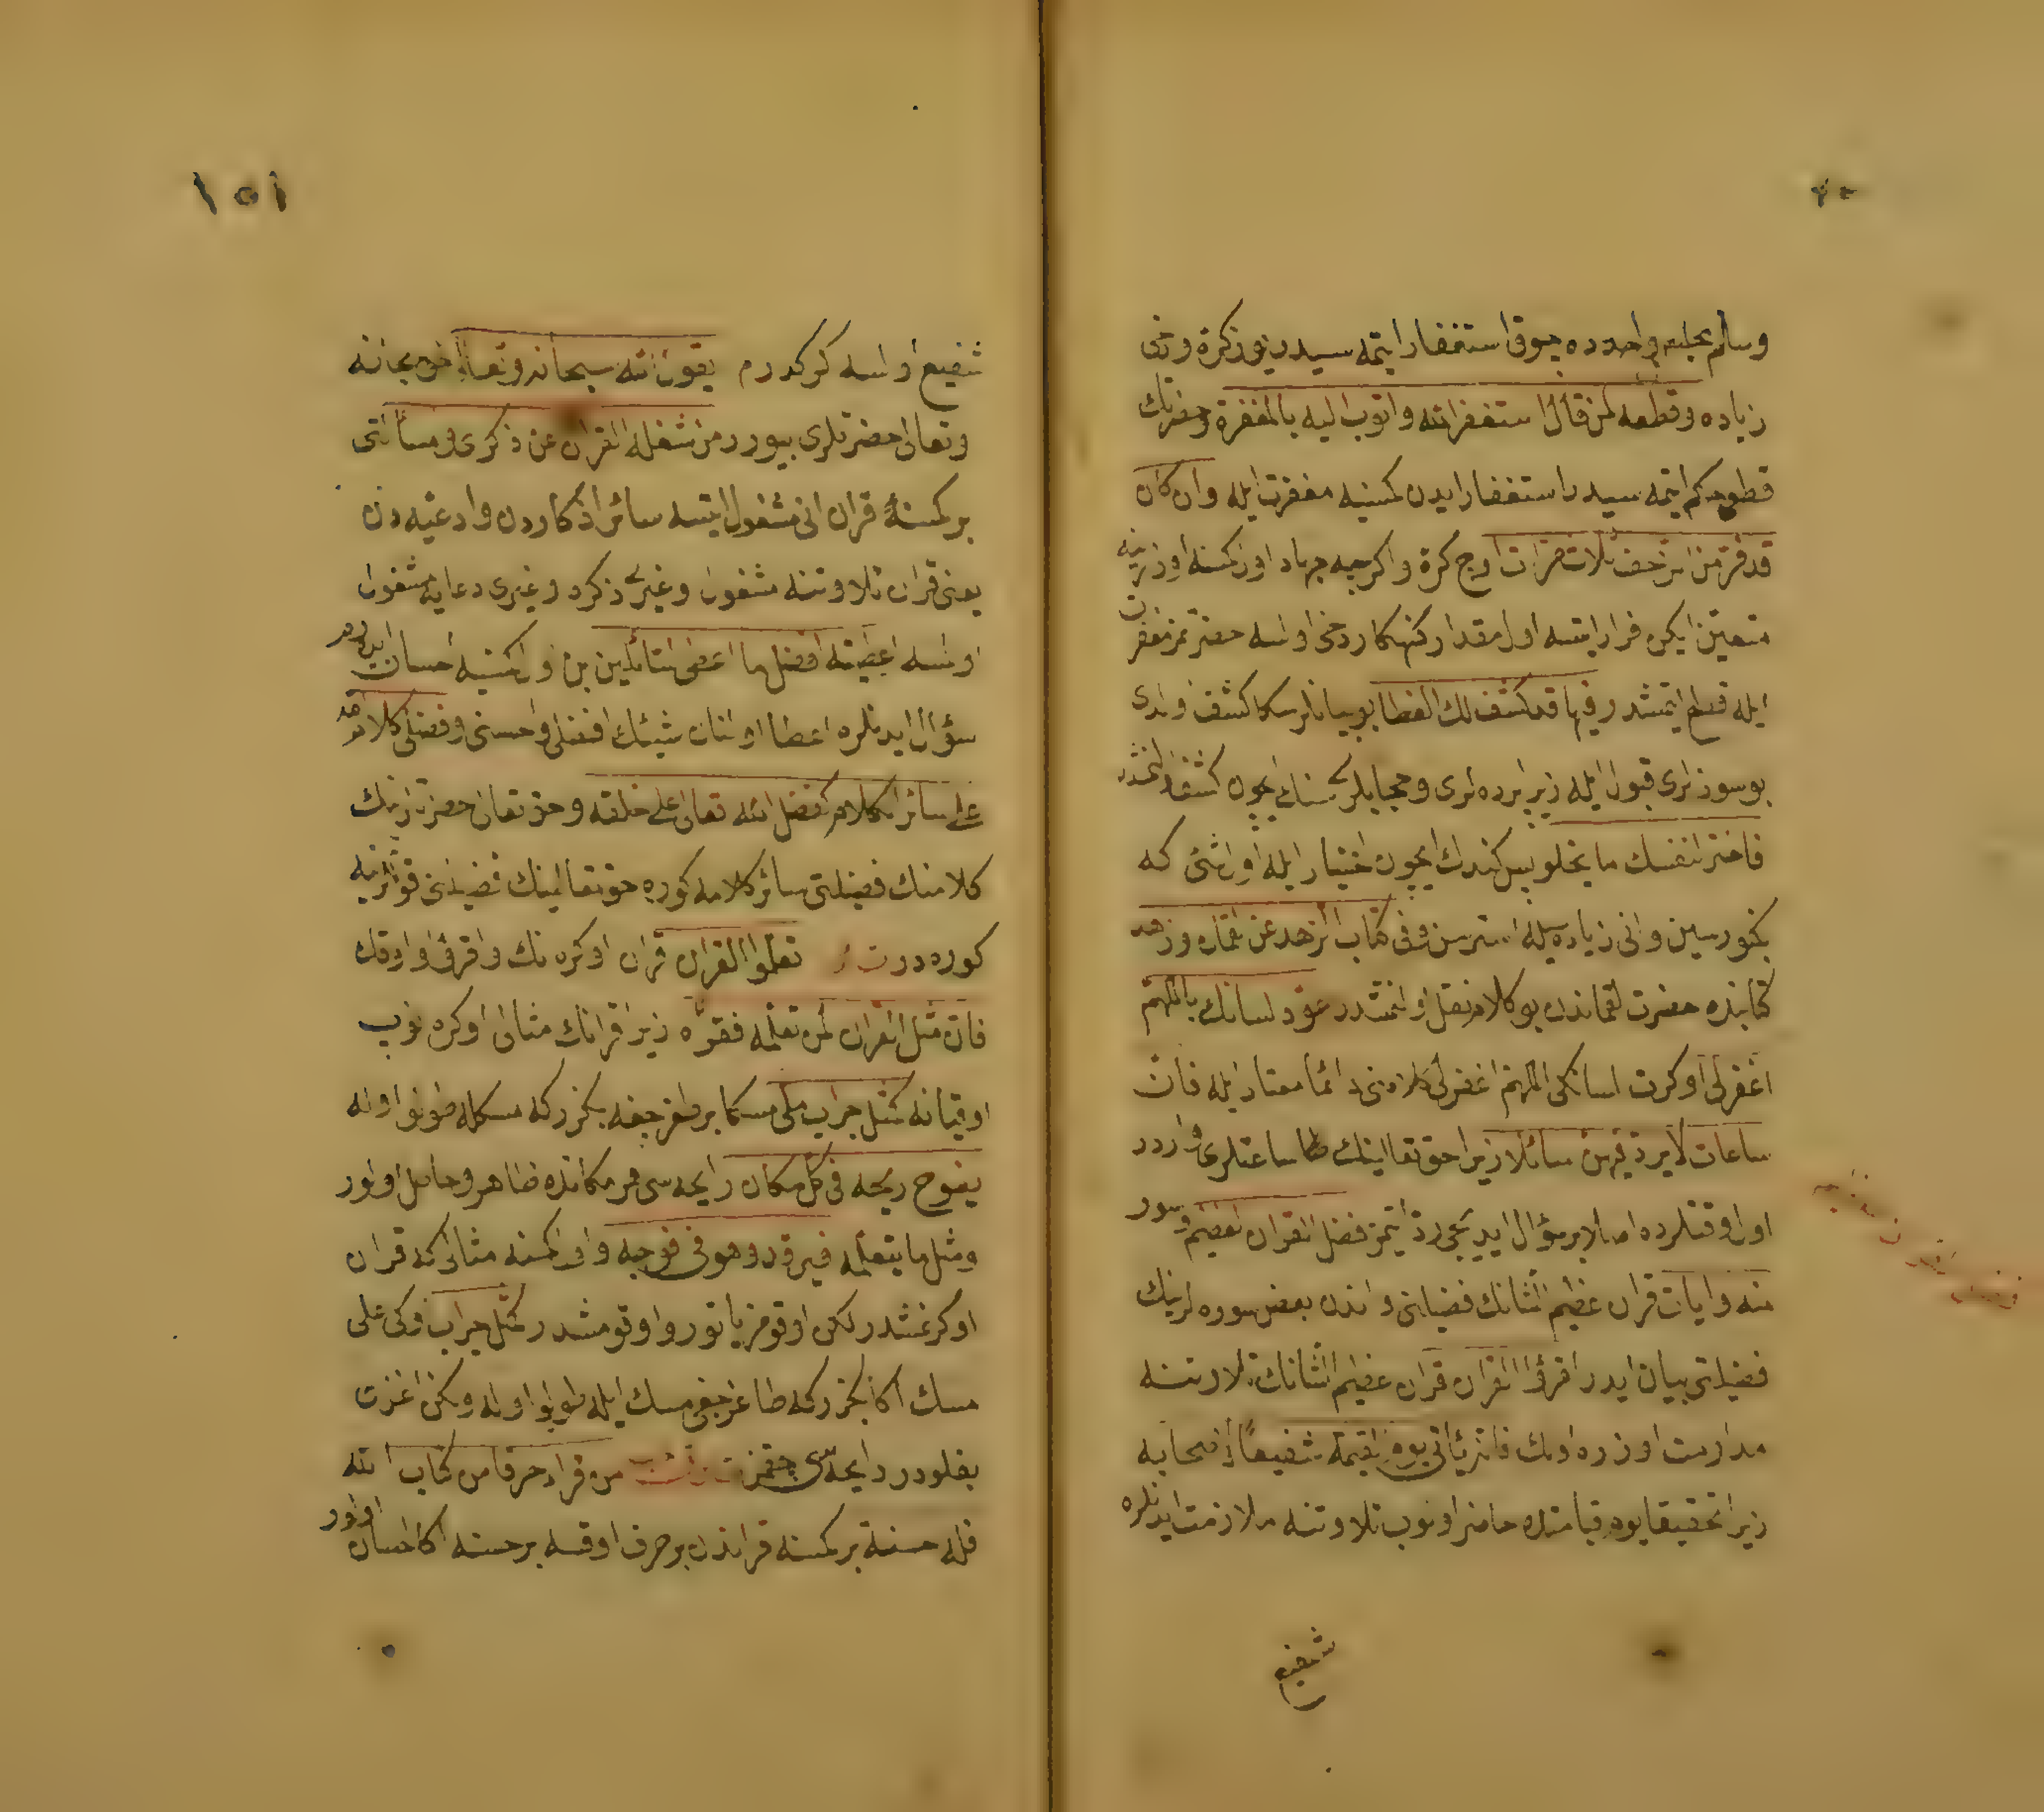 وسلم مجلس واحدده چوق استغفار ایتمه سیدر نیو ذکرة ودخی
زیاده وقطعه لمن قال استغفر الله واتوب اليه بالمغفرة وحضرتك
قطع حکم ایتمه سیدر استغفار ایدن کمسنیه مغفرت ایله وان کان
قد فر من الزحف ثلاث مرات اوچ کرة واکرچه جهاد اول کمسنه اوزرینه
متعین ایکن فرار ایتسه اول مقدار کنهکار دخی اولسه حضرتمز مغفرت
ایله قطع ایتمشدر فيها قد كشف لك الغطا بو بیانلر سکا کشف اولندی
بو سوزلری قبول ایله زیرا پرده لری وحجابلری سنك ایچون کشف ایتمشدر
فاختر لنفسك ما يحلو پس کندك ایچون اختیار ایله اول شئ که
بکنورسین وانی زیاده سیله استرسن وفى كتاب الزهد عن لقمان وزهد
کتابنده حضرت لقماندن بو کلام نقل اولنمشدر عود لسانك باللهم
اغفرلى اوکرت لسانکی اللهم اغفرلی کلامنی دائما معتاد ایله فان
ساعات لا يرد فيهن سائلا زیرا حق تعالینك ساعتلری واردر
اول وقتلرده اصلا بر سؤال ایدیجی رد ایتمز فضل القران العظيم وسور
منه وايات قران عظیم الشانك فضیلتی واندن بعض سوره لرینك
فضیلتی بیان ایدر اقرؤا القران قران عظیم الشانك تلاوتنه
مداومت اوزره اولك فانه يأتى يوم القيمة شفيعا لاصحابه
زیرا تحقیقا یوم قیامتده حاضر اولوب تلاوتنه ملازمت ایدنلره
شفیع
١٥١
شفیع اولسه کرکدر م يقول الله سبحانه وتعالى حق سبحانه
وتعالی حضرتلری بیورر من شغله القران عن ذكرى ومسألتى
بر کمسنه قران انی مشغول ایتسه سائر اذکاردن وادعیه دن
یعنی قران تلاوتنه مشغول وغیری ذکره وغیری دعایه مشغول
اولسه اعطيته افضل ما اعطى السائلين بن اول کمسنیه احسان ایدرم
سؤال ایدنلره اعطا اولنان شیئك افضلی واحسنی وفضل كلام الله
على سائر الكلام كفضل الله تعالى على خلقه وحق تعالی حضرتلرینك
کلامنك فضیلتی سائر کلامه کوره حق تعالینك فضیلتی قوللرینه
کوره در ت تعلموا القران قران اوکره نك واقرؤا واوقك
فان مثل القران لمن تعلمه فقرأه زیرا قرانك مثالی اوکره نوب
اوقیانه كمثل جراب ملى مسكا بر طغرجغه بکزر که مسکله طولو اوله
يفوح ريحه فى كل مكان رایحه سی هر مکانده ظاهر وحاصل اولور
ومثل ما يتعلمه فيرقد وهو فى جوفه واول کمسنه مثالی که قران
اوکرنمشدر لکن اوقومز یاتور واوقومشدر كمثل جراب وكى على
مسك اکا بکزر که طاغرجغی مسك ایله طولو اوله ولکن اغزی
بغلودر رایحه سی چقمز ت من قرأ حرفا من كتاب الله
فله حسنة بر کمسنه قراندن بر حرف اوقسه بر حسنه اکا احسان اولور